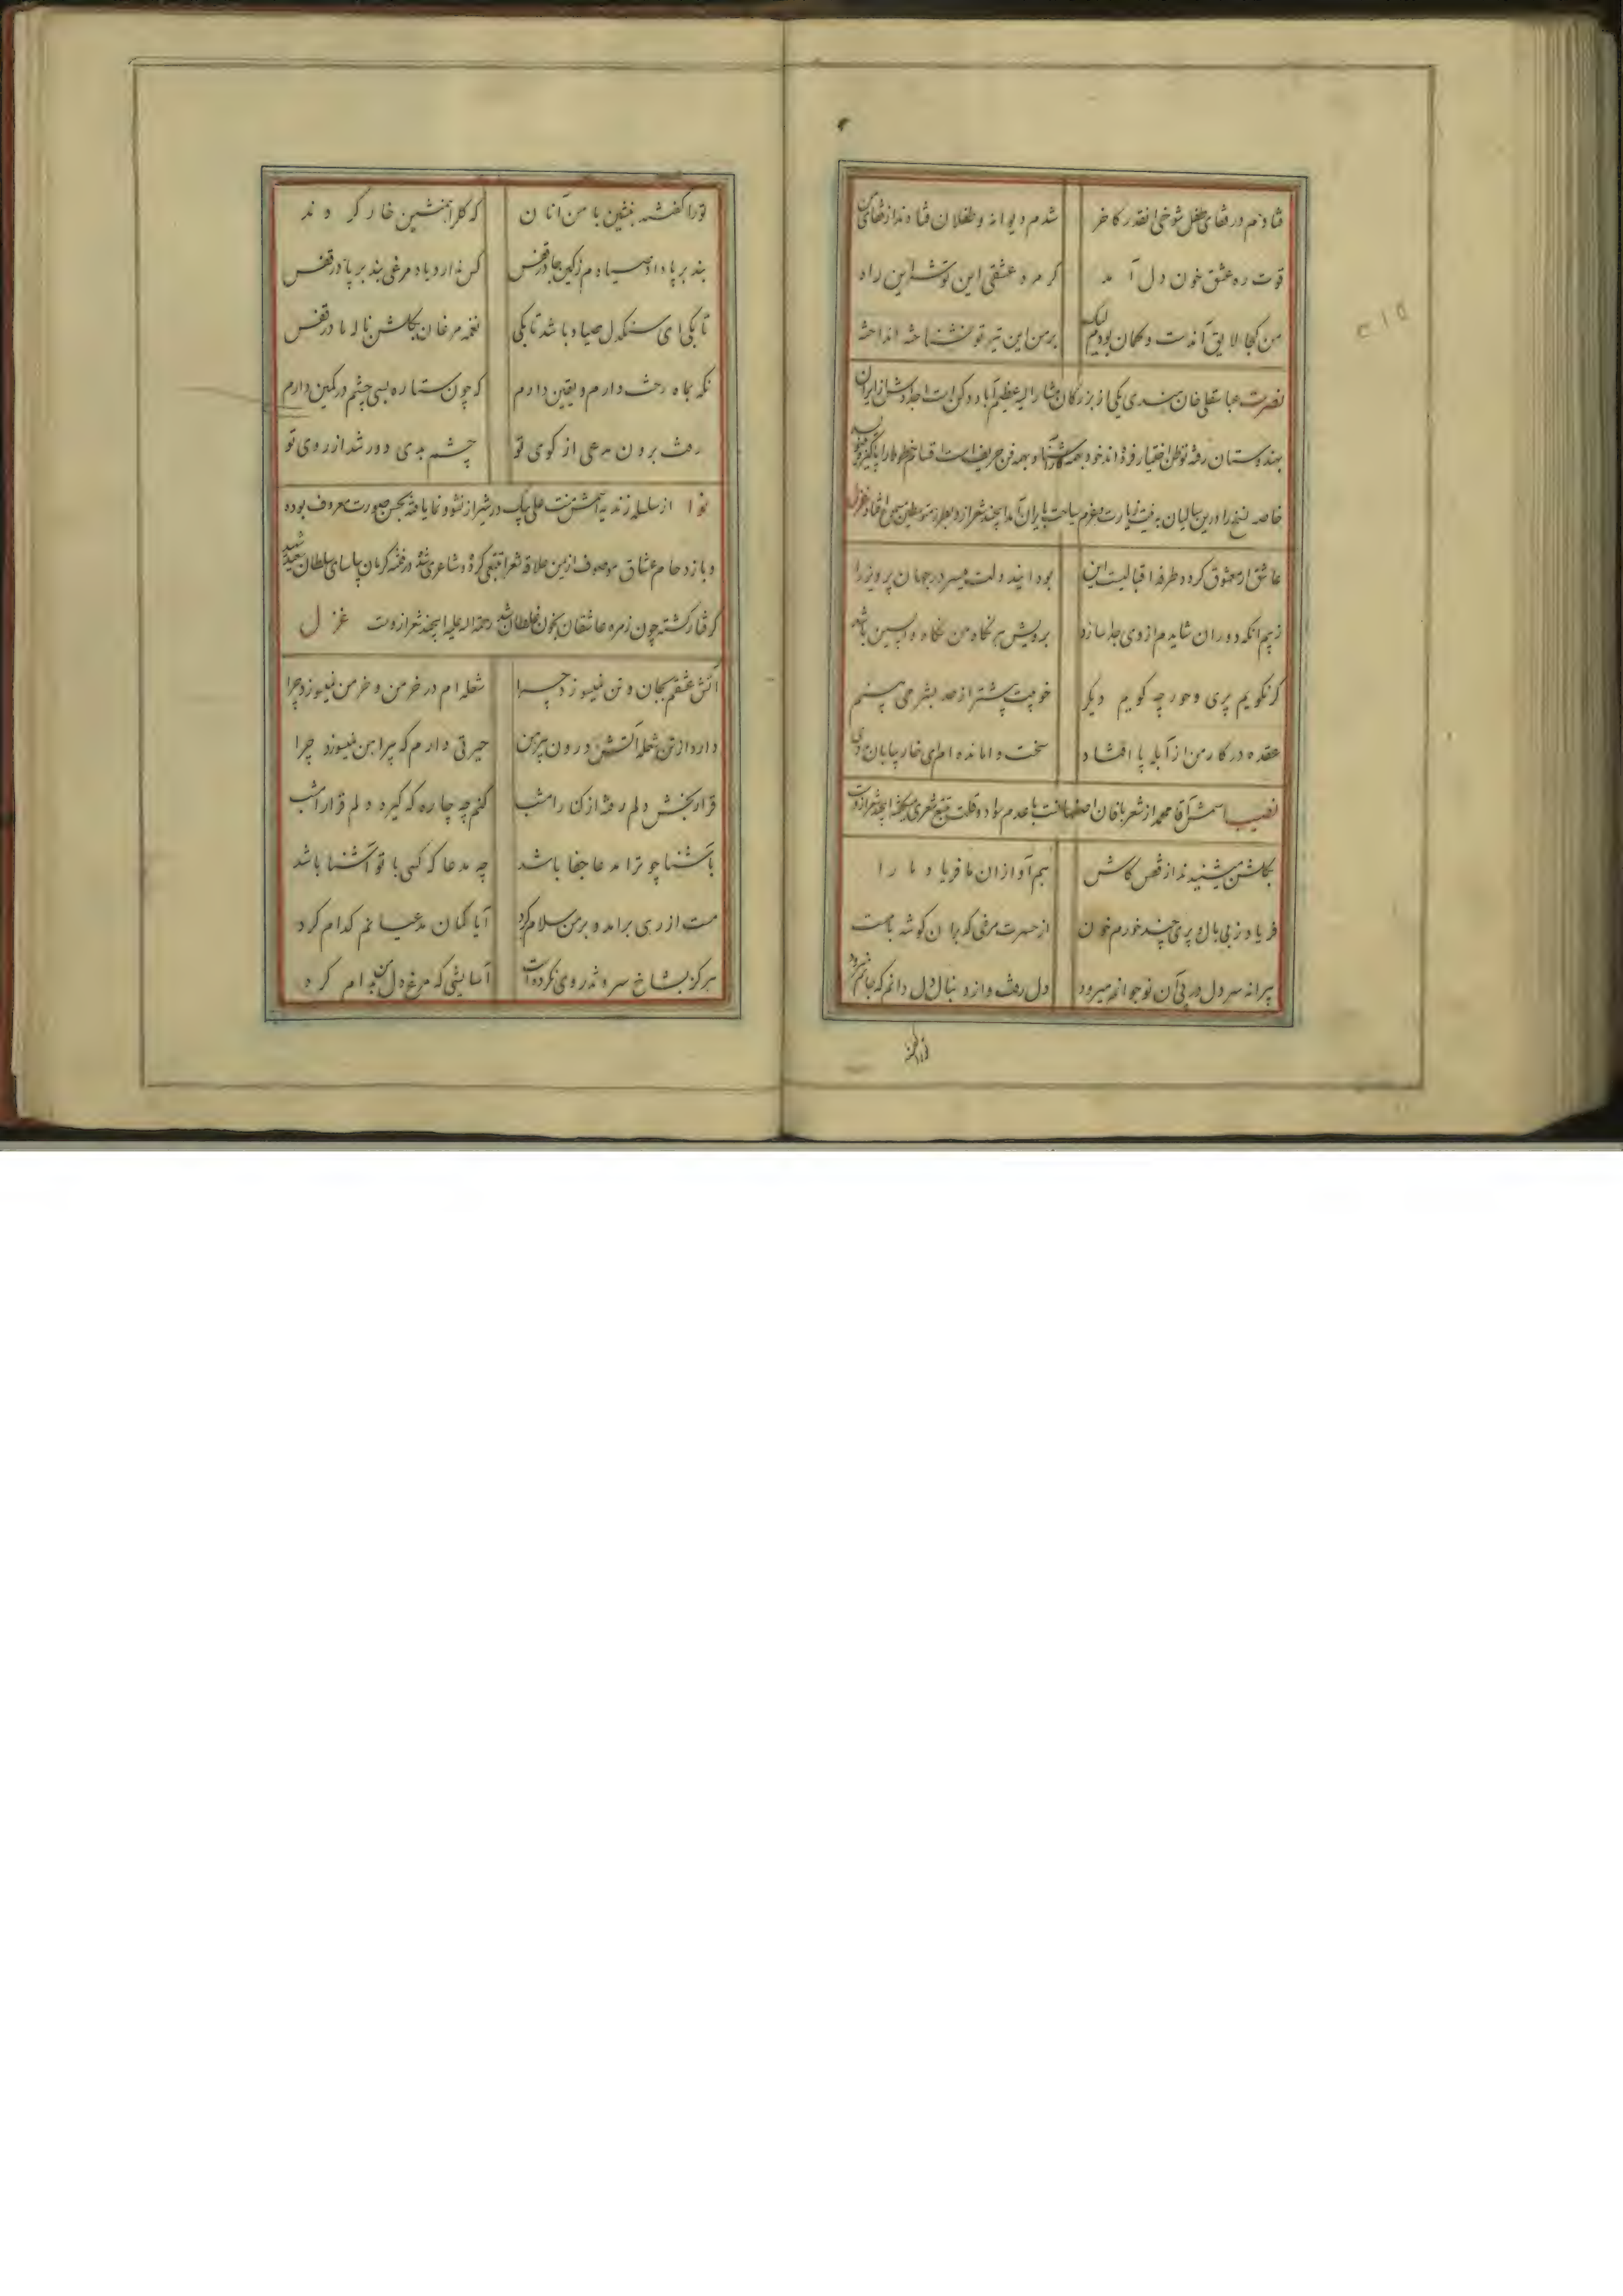 فتادم در قفای طفل شوخی آنقدر کاخر شدم دیوانه و طفلان فتادند از قفای من
قوت ره عشق خون دل آمد گر مرد عشقی این توشه این راه
من کجا لایق آن دست و کمان بودم لیک بر من این تیر تو نشناخته انداخته
نصرت عباسقلی خان هندی یکی از بزرگان مشارالیه عظیم آباد دکن است اجدادش از ایران
بهندوستان رفته توطن اختیار کرده اند خود بهمه کار آشنا و بهمه فن حریف است اقسام خطوط را پاکیزه
خاصه نسخ را درین سالیان به نیت زیارت و بعزم سیاحت بایران آمد اینچند شعر ازو بطرز متوسطین سمعی افتاد غزل
عاشق ار معشوق کرد و طرفه اقبالیست این بود ایند دولت میسر در جهان پرویز را
ز بیم آنکه دوران شایدم از وی جدا سازد برویش هر نگاه من نگاه واپسین باشد
گر نگویم پری و حور چه گویم دیگر خوبیت بیشتر از حد بشر می بینم
عقده در کار من از آبله پا افتاد سخت وامانده ام ای خار بیابان مددی
نصیب اسمش آقا محمد از شعربافان اصفهانست با عدم سواد و قلت تتبع شعری میگفته اینچند شعر ازوست
بگلشن میشنیدند از قفس کاش هم آوازان ما فریاد ما را
فریاد ز بی بال و پری چند خورم خون از حسرت مرغی که بر آن گوشه بامست
پیرانه سر دل در پی آن نوجوانم میرود دل رفت و از دنبال دل دانم که جانم میرود
تو را گفتند
تو را گفتند بنشین با من آنان که گل را همنشین خار کردند
بند بر پا داد صیادم ز کین جا در قفس کس ندارد یاد مرغی بند بر پا در قفس
تا بکی ای سنگدل صیاد باشد تا بکی نغمه مرغان بگلشن ناله ما در قفس
نگه بماه رخت دارم و یقین دارم که چون ستاره بسی چشم در کمین دارم
رفت برون مدعی از کوی تو چشم بدی دور شد از روی تو
نوا از سلسله زندیه اسمش منت علی بیک در شیراز نشو و نما یافته بحسن صورت معروف بوده
و بازدحام عشاق موصوف ازین علاقه شعرا تتبعی کرده و شاعری شده در فتنه کرمان بیاسای سلطان سعید شهید
گرفتار گشته چون زمره عاشقان بخون غلطان شد رحمة الله علیه اینچند شعر ازوست غزل
آتش عشقم بجان و تن نمیسوزد چرا شعله ام در خرمن و خرمن نمیسوزد چرا
دارد از تن شعله آتش درون پیرهن حیرتی دارم که پیراهن نمیسوزد چرا
قراربخش دلم رفته از کنار امشب کنم چه چاره که گیرد دلم قرار امشب
بآشنا چو ترا مدعا جفا باشد چه مدعا که کسی با تو آشنا باشد
مست از دری برآمد و بر من سلام کرد آیا گمان مدعیانم کدام کرد
هرگز بشاخ سرو تذروی نکرده است آسایشی که مرغ دل من بدام کرد